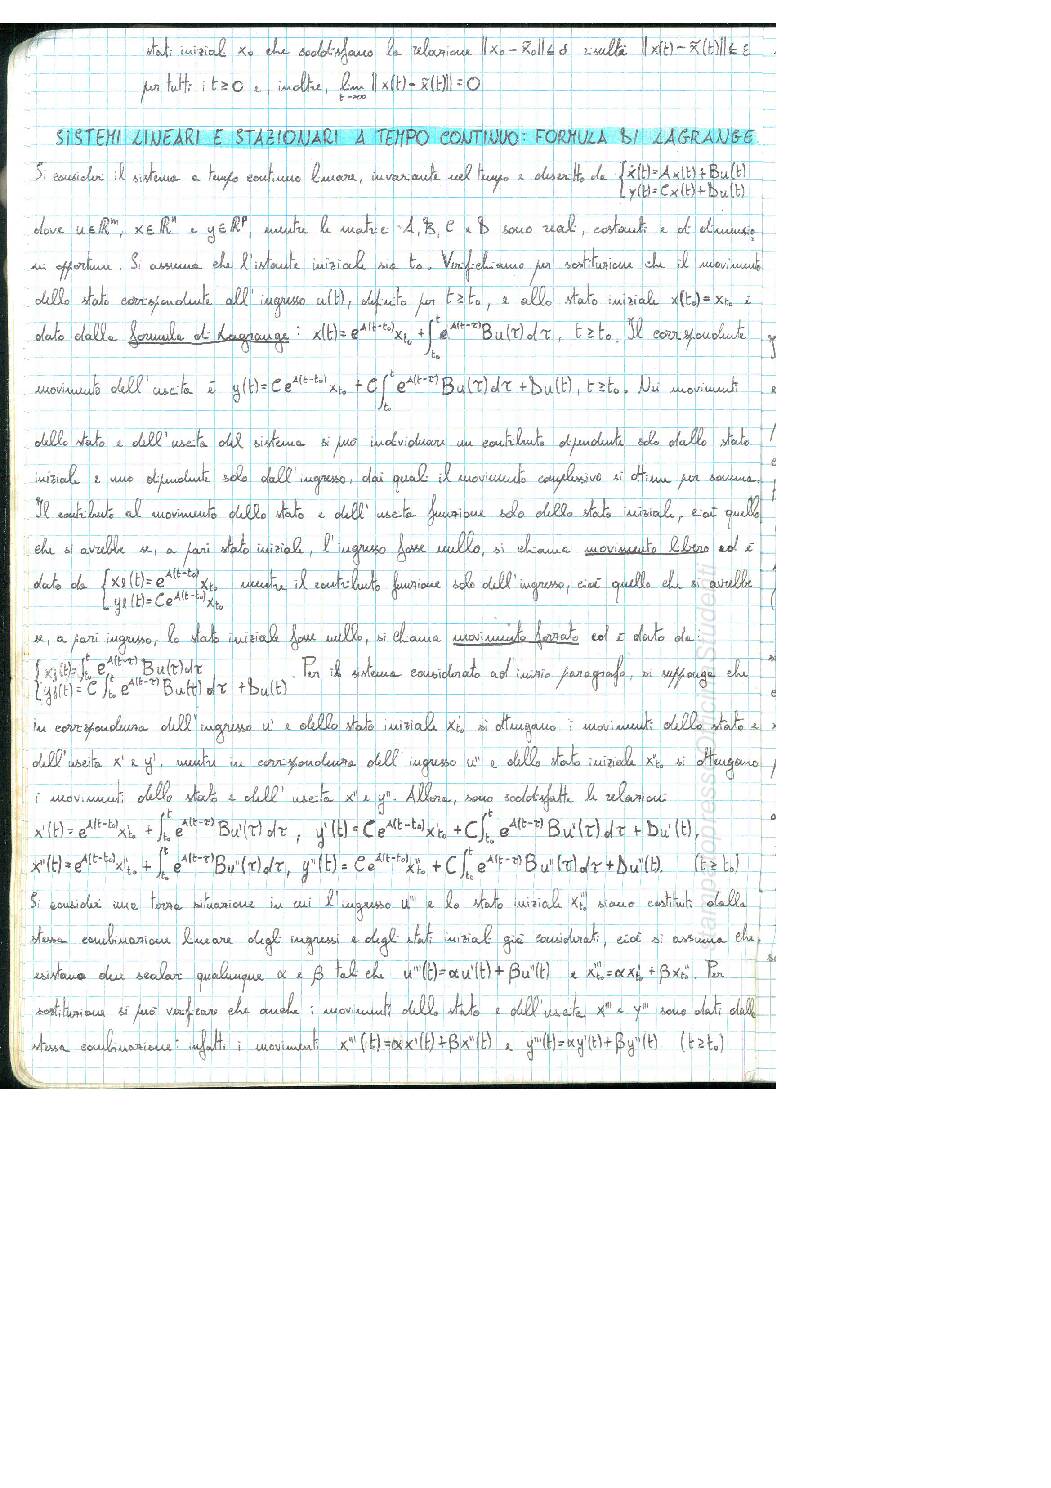 stati iniziali x₀ che soddisfano la relazione ||x₀ - x̃₀|| ≤ δ risulta ||x(t) - x̃(t)|| ≤ ε
per tutti i t ≥ 0 e, inoltre, lim t→∞ ||x(t) - x̃(t)|| = 0
SISTEMI LINEARI E STAZIONARI A TEMPO CONTINUO: FORMULA DI LAGRANGE
Si consideri il sistema a tempo continuo lineare, invariante nel tempo e descritto da { ẋ(t)=Ax(t)+Bu(t)
y(t)=Cx(t)+Du(t)
dove u∈ℝᵐ, x∈ℝⁿ e y∈ℝᵖ, mentre le matrici A, B, C e D sono reali, costanti e di dimensio
ni opportune. Si assuma che l'istante iniziale sia t₀. Verifichiamo per sostituzione che il movimento
dello stato corrispondente all'ingresso u(t), definito per t≥t₀, e allo stato iniziale x(t₀)=x_t₀ è
dato dalla formula di Lagrange: x(t)=e^A(t-t₀) x_t₀ + ∫_t₀^t e^A(t-τ) Bu(τ)dτ, t≥t₀. Il corrispondente
movimento dell'uscita è y(t)=Ce^A(t-t₀) x_t₀ + C∫_t₀^t e^A(t-τ) Bu(τ)dτ + Du(t), t≥t₀. Nei movimenti
dello stato e dell'uscita del sistema si può individuare un contributo dipendente solo dallo stato
iniziale e uno dipendente solo dall'ingresso, dai quali il movimento complessivo si ottiene per somma.
Il contributo al movimento dello stato e dell'uscita funzione solo dello stato iniziale, cioè quello
che si avrebbe se, a pari stato iniziale, l'ingresso fosse nullo, si chiama movimento libero ed è
dato da { x_l(t)=e^A(t-t₀) x_t₀ mentre il contributo funzione solo dell'ingresso, cioè quello che si avrebbe
y_l(t)=Ce^A(t-t₀) x_t₀
se, a pari ingresso, lo stato iniziale fosse nullo, si chiama movimento forzato ed è dato da:
{ x_f(t)=∫_t₀^t e^A(t-τ) Bu(τ)dτ . Per il sistema considerato ad inizio paragrafo, si supponga che
y_f(t)= C∫_t₀^t e^A(t-τ) Bu(τ)dτ + Du(t)
in corrispondenza dell'ingresso u' e dello stato iniziale x'_t₀ si ottengano i movimenti dello stato e
dell'uscita x' e y', mentre in corrispondenza dell'ingresso u'' e dello stato iniziale x''_t₀ si ottengano
i movimenti dello stato e dell'uscita x'' e y''. Allora, sono soddisfatte le relazioni
x'(t)=e^A(t-t₀) x'_t₀ + ∫_t₀^t e^A(t-τ) Bu'(τ)dτ, y'(t)=Ce^A(t-t₀) x'_t₀ + C∫_t₀^t e^A(t-τ) Bu'(τ)dτ + Du'(t),
x''(t)=e^A(t-t₀) x''_t₀ + ∫_t₀^t e^A(t-τ) Bu''(τ)dτ, y''(t)=Ce^A(t-t₀) x''_t₀ + C∫_t₀^t e^A(t-τ) Bu''(τ)dτ + Du''(t). (t≥t₀)
Si consideri una terza situazione in cui l'ingresso u''' e lo stato iniziale x'''_t₀ siano costituiti dalla
stessa combinazione lineare degli ingressi e degli stati iniziali già considerati, cioè si assuma che
esistano due scalari qualunque α e β tali che u'''(t)=αu'(t)+βu''(t) e x'''_t₀=αx'_t₀+βx''_t₀. Per
sostituzione si può verificare che anche i movimenti dello stato e dell'uscita x''' e y''' sono dati dalla
stessa combinazione: infatti i movimenti x'''(t)=αx'(t)+βx''(t) e y'''(t)=αy'(t)+βy''(t) (t≥t₀)